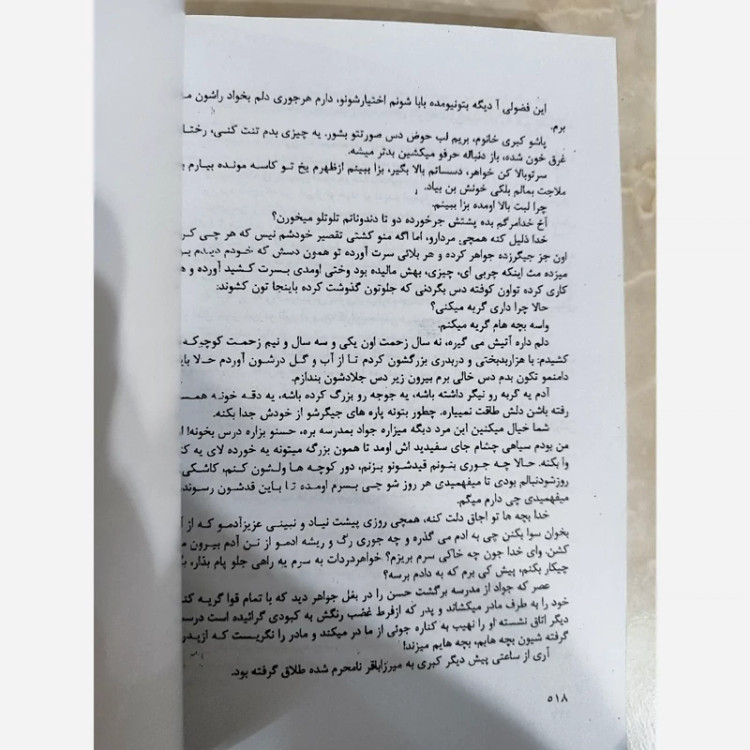 این فضولی آ دیگه بتونیومده بابا شونم اختیارشونو، دارم هرجوری دلم بخواد راشون
برم.
پاشو کبری خانوم، بریم لب حوض دس صورتتو بشور. یه چیزی بدم تنت کنی، رختا
غرق خون شده، باز دنباله حرفو میکشین بدتر میشه.
سرتوبالا کن خواهر، دسساتم بالا بگیر، بزا ببینم ازظهرم یخ تو کاسه مونده بیارم
ملاجت بمالم بلکی خونش بن بیاد.
چرا لبت بالا اومده بزا ببینم.
آخ خدامرگم بده پشتش جرخورده دو تا دندوناتم تلوتلو میخورن؟
خدا ذلیل کنه همچی مردارو، اما اگه منو کشتی تقصیر خودشم نیس که هر چی
اون جز جیگرزده جواهر کرده و هر بلائی سرت آورده تو همون دسش که خودم دیدم
میزده مث اینکه چربی ای، چیزی، بهش مالیده بود وختی اومدی بسرت کشید آورده و
کاری کرده تواون کوفته دس بگردنی که جلوتون گذوشت کرده باینجا تون کشوند:
حالا چرا داری گریه میکنی؟
واسه بچه هام گریه میکنم.
دلم داره آتیش می گیره، نه سال زحمت اون یکی و سه سال و نیم زحمت کوچیکه
کشیدم: با هزاربدبختی و دربدری بزرگشون کردم تا از آب و گل درشون آوردم حالا
دامنمو تکون بدم دس خالی برم بیرون زیر دس جلادشون بندازم.
آدم یه گربه رو نیگر داشته باشه، یه جوجه رو بزرگ کرده باشه، یه دقه خونه
رفته باشن دلش طاقت نمییاره. چطور بتونه پاره های جیگرشو از خودش جدا بکنه.
شما خیال میکنین این مرد دیگه میزاره جواد بمدرسه بره، حسنو بزاره درس بخونه!
من بودم سیاهی چشام جای سفیدید اش اومد تا همون بزرگه میتونه یه خورده لای یه
وا بکنه. حالا چه جوری بتونم قیدشونو بزنم، دور کوچه ها ولشون کنم، کاشکی
روزشودنبالم بودی تا میفهمیدی هر روز شو چی بسرم اومده تا باین قدشون رسوند
میفهمیدی چی دارم میگم.
خدا بچه ها تو اجاق دلت کنه، همچی روزی پیشت نیاد و نبینی عزیزآدمو که از
بخوان سوا بکنن چی به ادم می گذره و چه جوری رگ و ریشه ادمو از تن آدم بیرون
کشن. وای خدا جون چه خاکی سرم بریزم؟ خواهردردات به سرم یه راهی جلو پام بذار،
چیکار بکنم، پیش کی برم که به دادم برسه؟
عصر که جواد از مدرسه برگشت حسن را در بغل جواهر دید که با تمام قوا گریه
خود را به طرف مادر میکشاند و پدر که ازفرط غضب رنگش به کبودی گرائیده است
دیگر اتاق نشسته او را نهیب به کناره جوئی از ما در میکند و مادر را نگریست که
گرفته شیون بچه هایم، بچه هایم میزند!
آری از ساعتی پیش دیگر کبری به میرزاباقر نامحرم شده طلاق گرفته بود.
۵۱۸